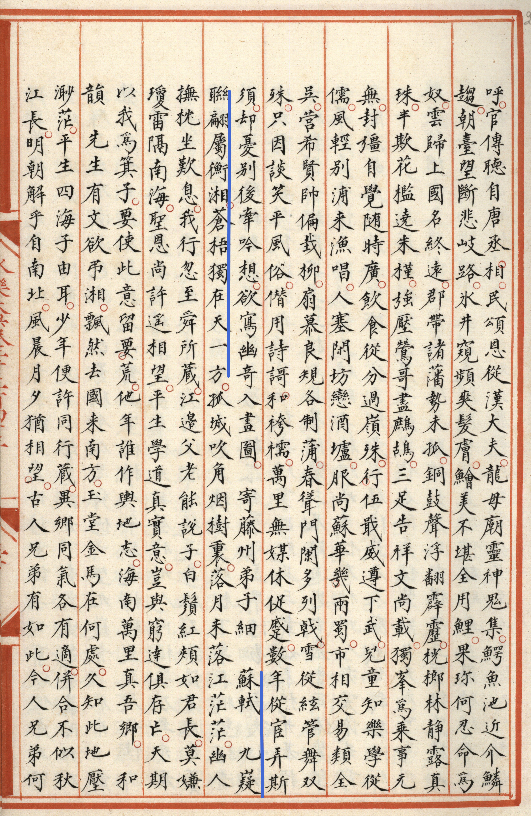 呼官傳聽自唐丞相民頌恩從漢大夫龍母廟靈神鬼集鰐魚池近介鱗
趨朝臺望斷悲岐路氷井窺頻爽髮膚鱠美不堪全用鯉果珍何忍命爲
奴雲歸上國名終遠郡帶諸藩勢未孤銅鼓聲浮翻霹靂桄榔林靜露真
珠半欺花檻遠來槿強壓鶯哥盡鷓鴣三足告祥文尚載獨峯爲乘事元
無封疆自覺随時廣飲食從分過嶺殊行伍戢威遵下武兒童知樂學從
儒風輕别浦来漁唱人塞閙坊戀酒壚服尚蘇華幾兩蜀市相交易類全
吳営希賢帥偏栽柳扇慕良規各制蒲春聳門闌多列戟雪從絃管舞双
殊只因談笑平風俗僣用詩謌和袴襦萬里無媒休促蹙數年從官弄斯
須却憂别後牽吟想欲寫幽奇入畫圖 寄藤州弟子細 蘇軾 九嶷
聯翩屬衡湘蒼梧獨在天一方孤城吹角烟樹裏落月未落江茫茫幽人
撫枕坐歎息我行忽至舜所藏江邉父老能說子白鬚紅頰如君長莫嫌
瓊雷隅南海聖恩尚許遥相望平生學道真實意豈與窮達俱存亡天期
以我爲箕子要使此意留要荒他年誰作輿地志海南萬里真吾鄉 和
韻 先生有文欲弔湘飄然去國来南方玉堂金馬在何處久知此地壓
渺茫平生四海子由耳少年便許同行藏異鄉同氣各有適併合不似秋
江長明朝解手自南北風晨月夕猶相望古人兄弟有如此今人兄弟何